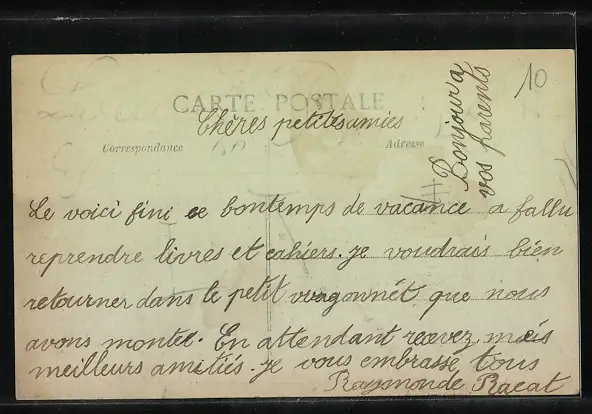 CARTE POSTALE
Chères petites amies
Correspondance
Adresse
Bonjour a
vos parents
10
Le voici fini ce bontemps de vacance a fallu
reprendre livres et cahiers. je voudrais bien
retourner dans le petit wagonnét que nous
avons montee. En attendant recevez mais
meilleurs amitiés. je vous embrasse tous
Raymonde Racat